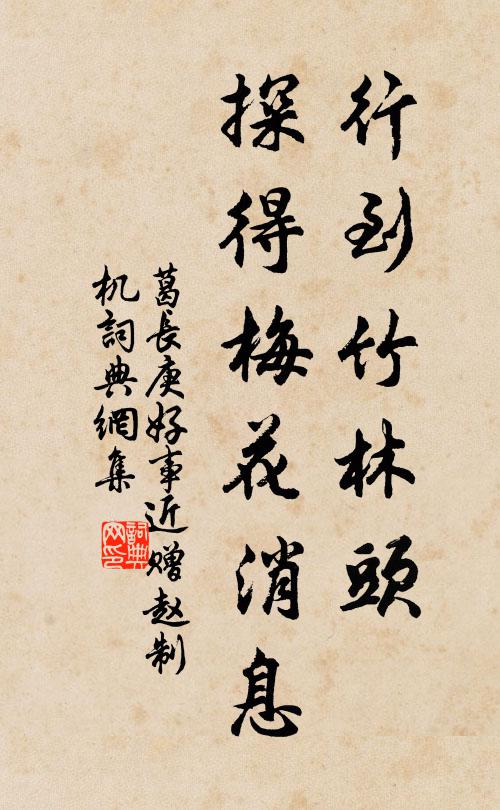 行到竹林頭
探得梅花消息
葛長庚好事近贈赵制
机詞典網集
詞典網印